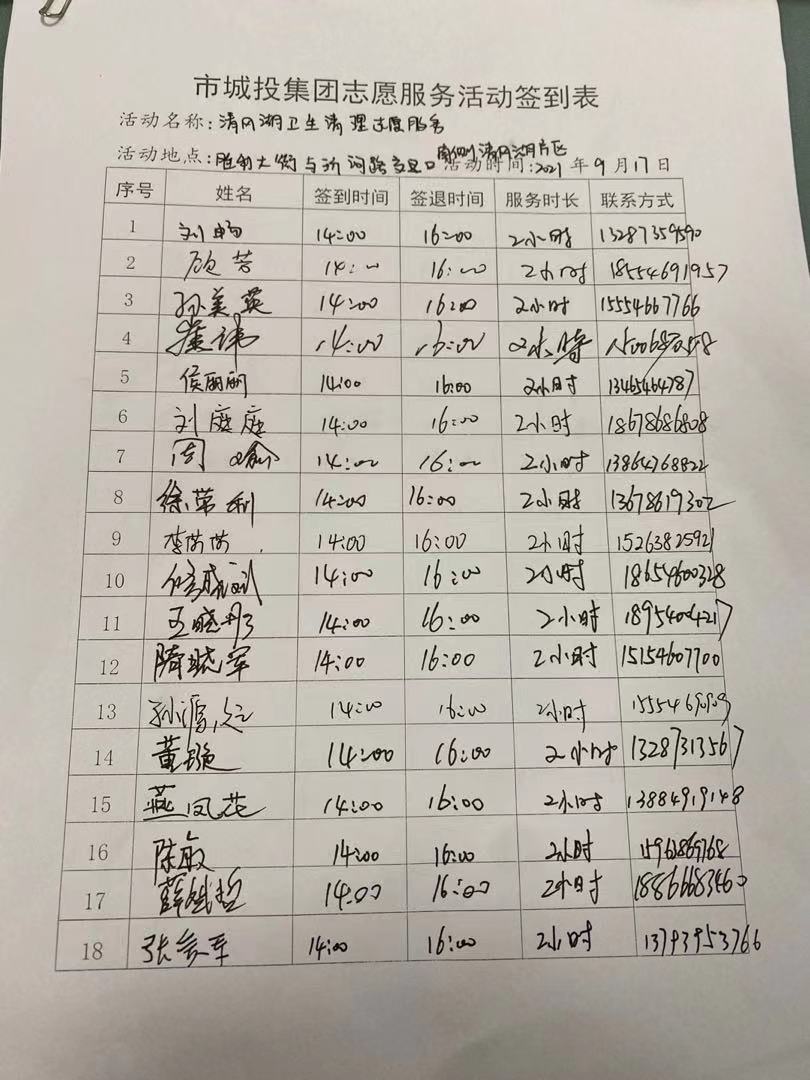 市城投集团志愿服务活动签到表
活动名称：清风湖卫生清理志愿服务
活动地点：胜利大街与沂河路交叉口南侧清风湖片区 活动时间：2021年9月17日
序号 姓名 签到时间 签退时间 服务时长 联系方式
1 刘 14:00 16:00 2小时 13287359590
2 顾芳 14:00 16:00 2小时 18554691957
3 孙美英 14:00 16:00 2小时 15554667766
4 14:00 16:00 2小时
5 侯丽丽 14:00 16:00 2小时 13465464787
6 刘庭庭 14:00 16:00 2小时 18678686808
7 周瑜 14:00 16:00 2小时 13864768822
8 徐荣利 14:00 16:00 2小时 13678619302
9 李 14:00 16:00 2小时 15263825921
10 14:00 16:00 2小时 18654600328
11 王晓丹 14:00 16:00 2小时 18954064217
12 隋晓军 14:00 16:00 2小时 15154607700
13 孙 14:00 16:00 2小时
14 黄 14:00 16:00 2小时 13287313567
15 燕凤花 14:00 16:00 2小时 13884919148
16 陈敏 14:00 16:00 2小时 15963869768
17 薛 14:00 16:00 2小时 18866683460
18 张 军 14:00 16:00 2小时 13793953766